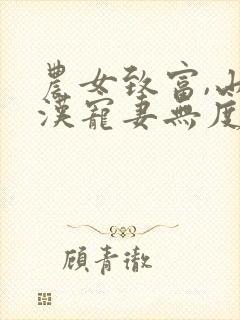 農女致富,山
漢寵妻無度
顧青澈